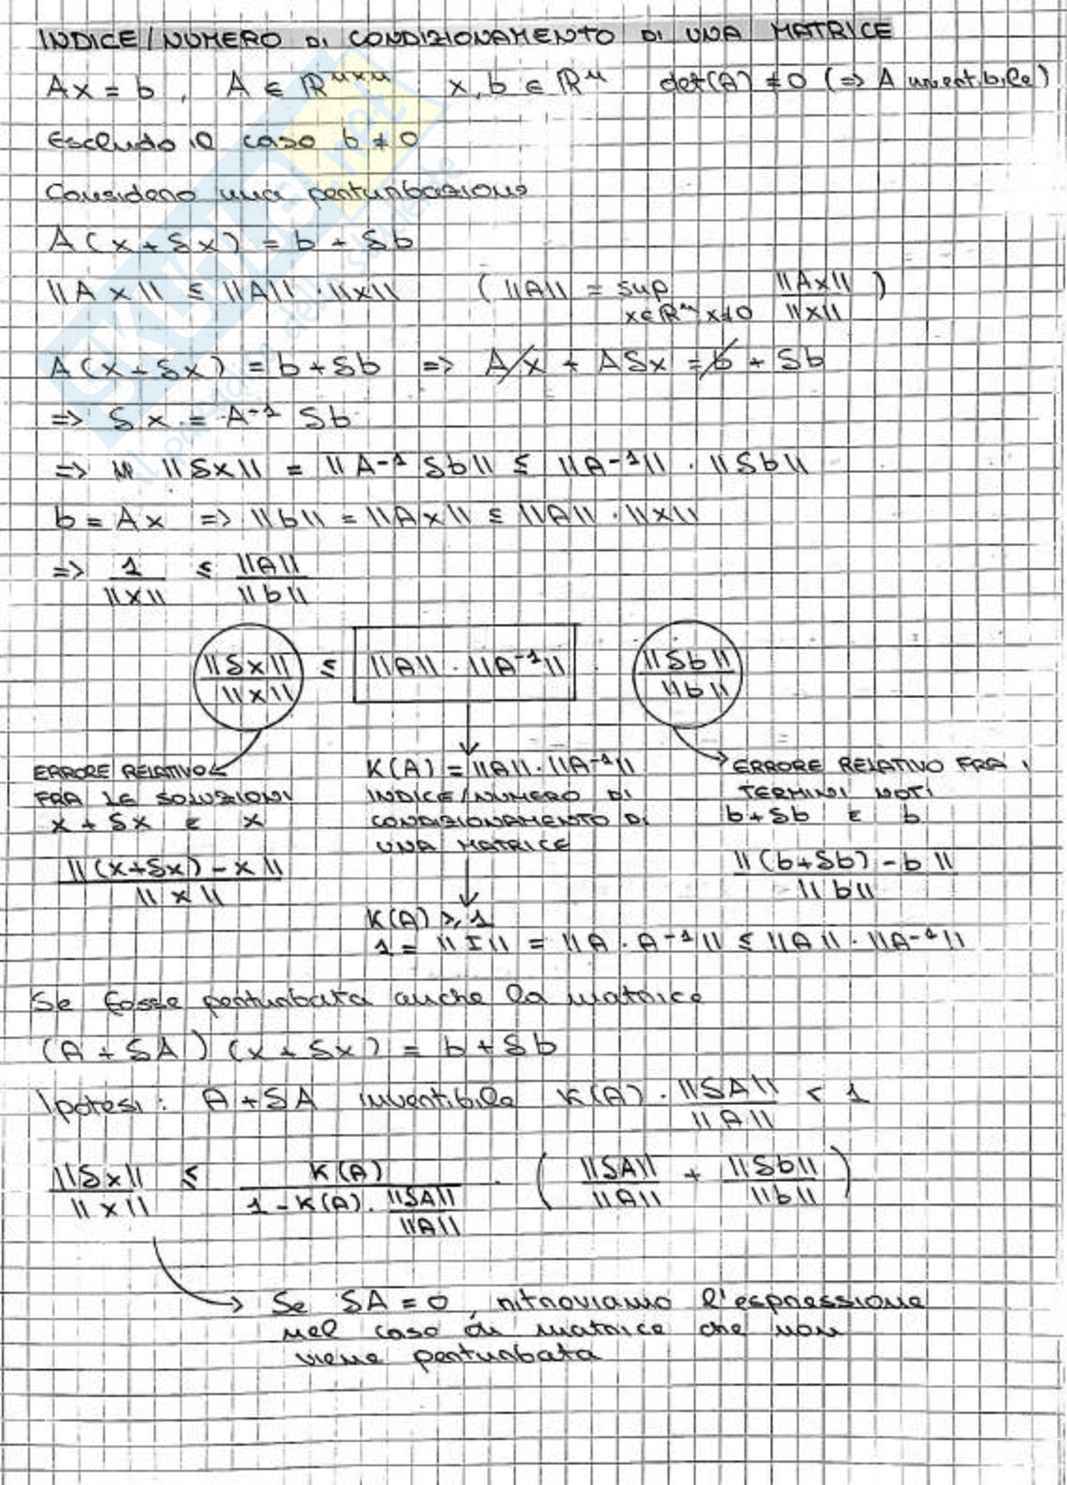 INDICE/NUMERO DI CONDIZIONAMENTO DI UNA MATRICE
Ax = b , A ∈ ℝⁿˣⁿ x, b ∈ ℝⁿ det(A) ≠ 0 (=> A invertibile)
Escludo il caso b ≠ 0
Considero una perturbazione
A(x + δx) = b + δb
||Ax|| ≤ ||A|| · ||x|| ( ||A|| = sup x∈ℝⁿ x≠0 ||Ax|| / ||x|| )
A(x + δx) = b + δb => Ax + Aδx = b + δb
=> δx = A⁻¹ δb
=> ||δx|| = ||A⁻¹ δb|| ≤ ||A⁻¹|| · ||δb||
b = Ax => ||b|| = ||Ax|| ≤ ||A|| · ||x||
=> 1 / ||x|| ≤ ||A|| / ||b||
||δx|| / ||x|| ≤ ||A|| · ||A⁻¹|| · ||δb|| / ||b||
ERRORE RELATIVO
FRA LE SOLUZIONI
x + δx E x
||(x+δx) - x|| / ||x||
K(A) = ||A|| · ||A⁻¹||
INDICE/NUMERO DI
CONDIZIONAMENTO DI
UNA MATRICE
K(A) ≥ 1
1 = ||I|| = ||A · A⁻¹|| ≤ ||A|| · ||A⁻¹||
ERRORE RELATIVO FRA I
TERMINI NOTI
b + δb E b
||(b+δb) - b|| / ||b||
Se fosse perturbata anche la matrice
(A + δA) (x + δx) = b + δb
Ipotesi: A + δA invertibile K(A) · ||δA|| / ||A|| < 1
||δx|| / ||x|| ≤ K(A) / (1 - K(A) · ||δA|| / ||A||) · ( ||δA|| / ||A|| + ||δb|| / ||b|| )
Se δA = 0, ritroviamo l'espressione
nel caso di matrice che non
viene perturbata